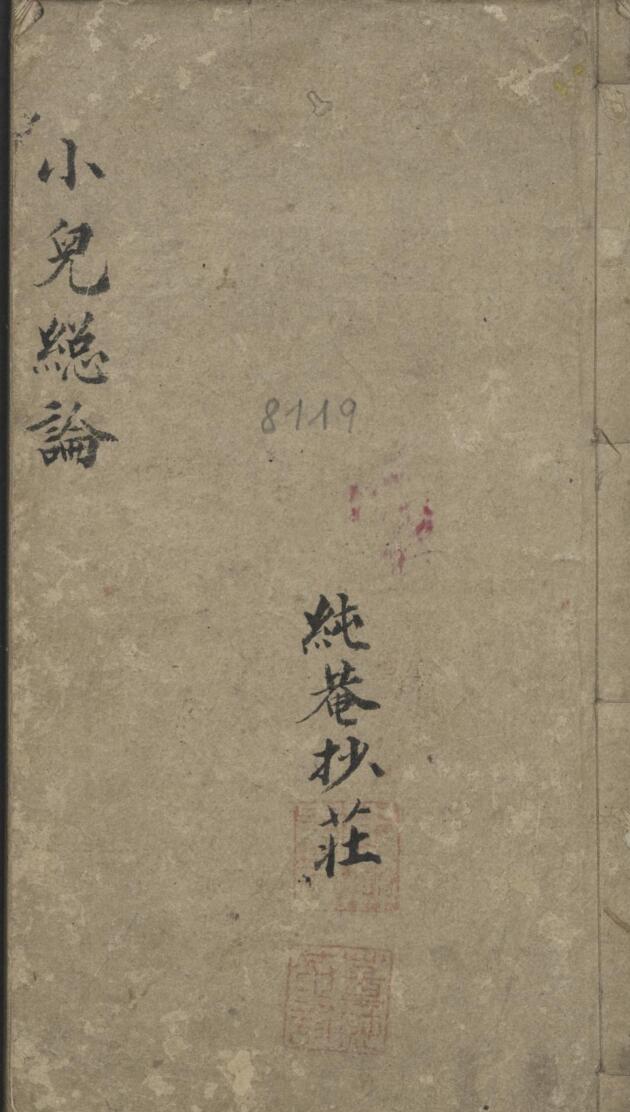 小兒緫論
8119
純菴抄莊